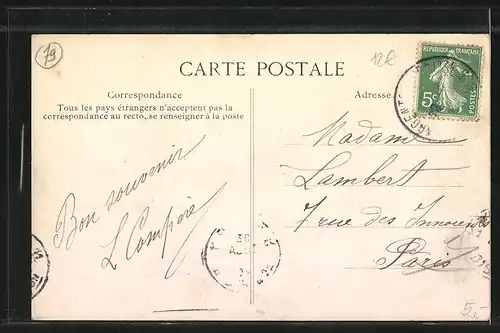 79
12€
CARTE POSTALE
REPUBLIQUE FRANÇAISE
5c
POSTES
Correspondance
Tous les pays étrangers n'acceptent pas la
correspondance au recto, se renseigner à la poste
Adresse
Madame
Lambert
7 rue des Innocents
Paris
Bon souvenir
L Compère
5.-